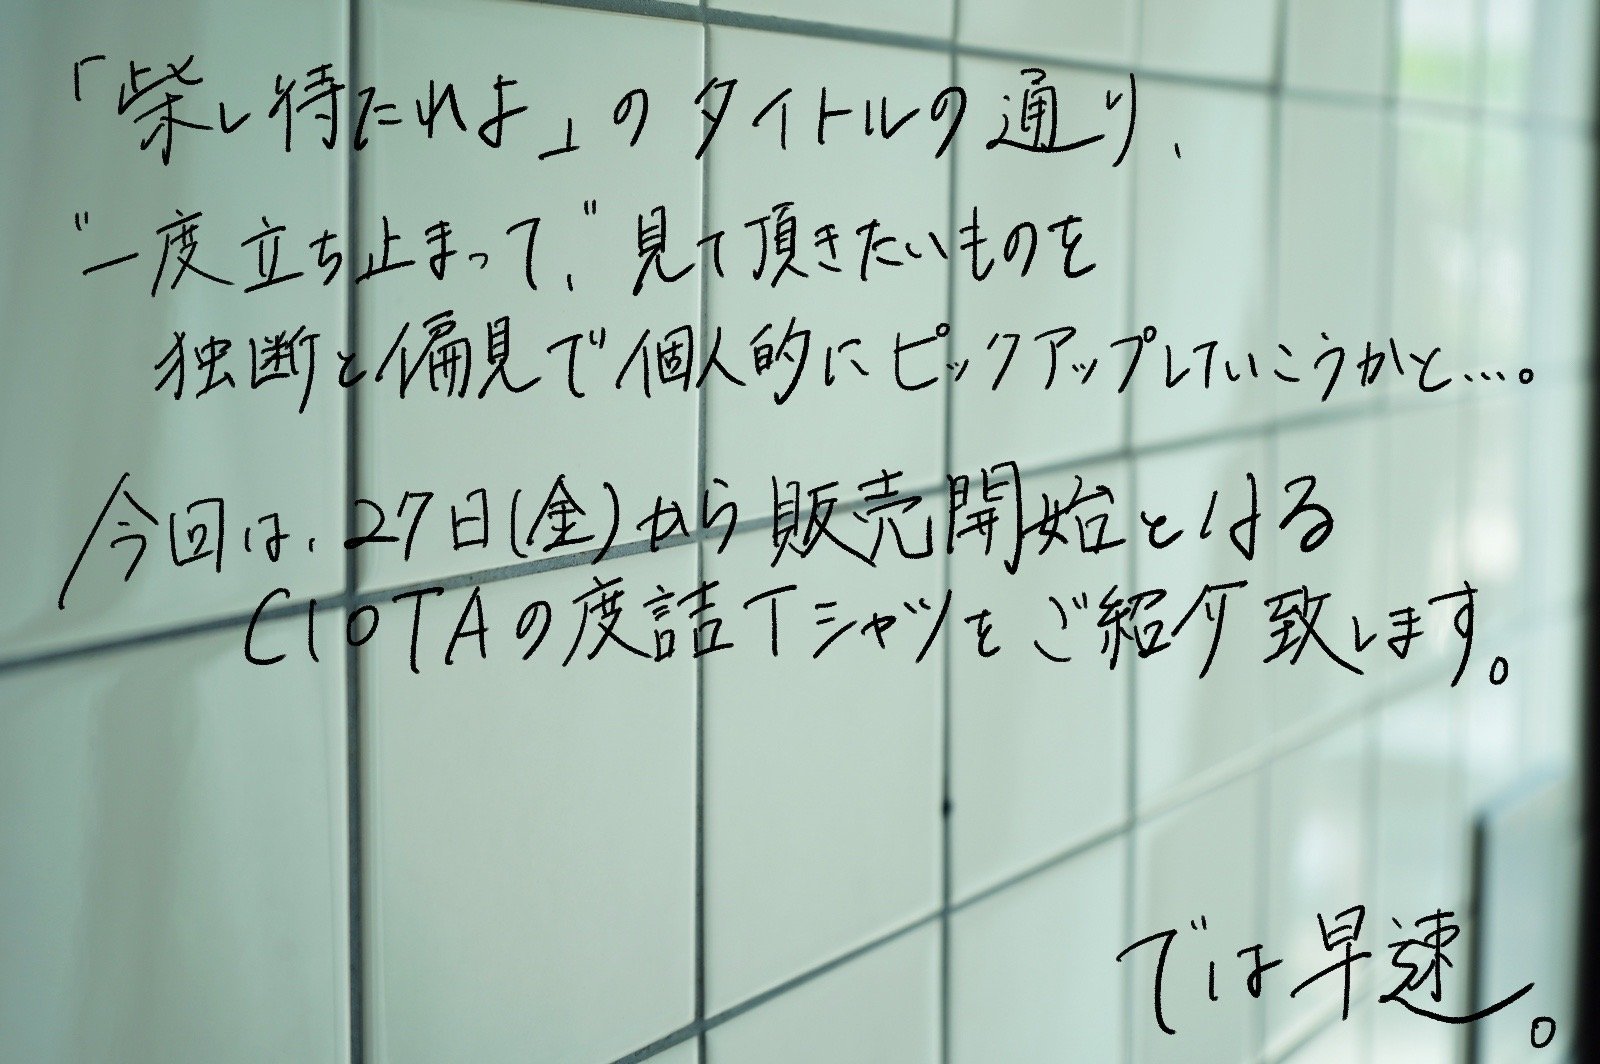 「柴し待たれよ」のタイトルの通り、
"一度立ち止まって、"見て頂きたいものを
独断と偏見で個人的にピックアップしていこうかと…。
今回は、27日(金)から販売開始となる
CIOTAの度詰Tシャツをご紹介致します。
では早速。